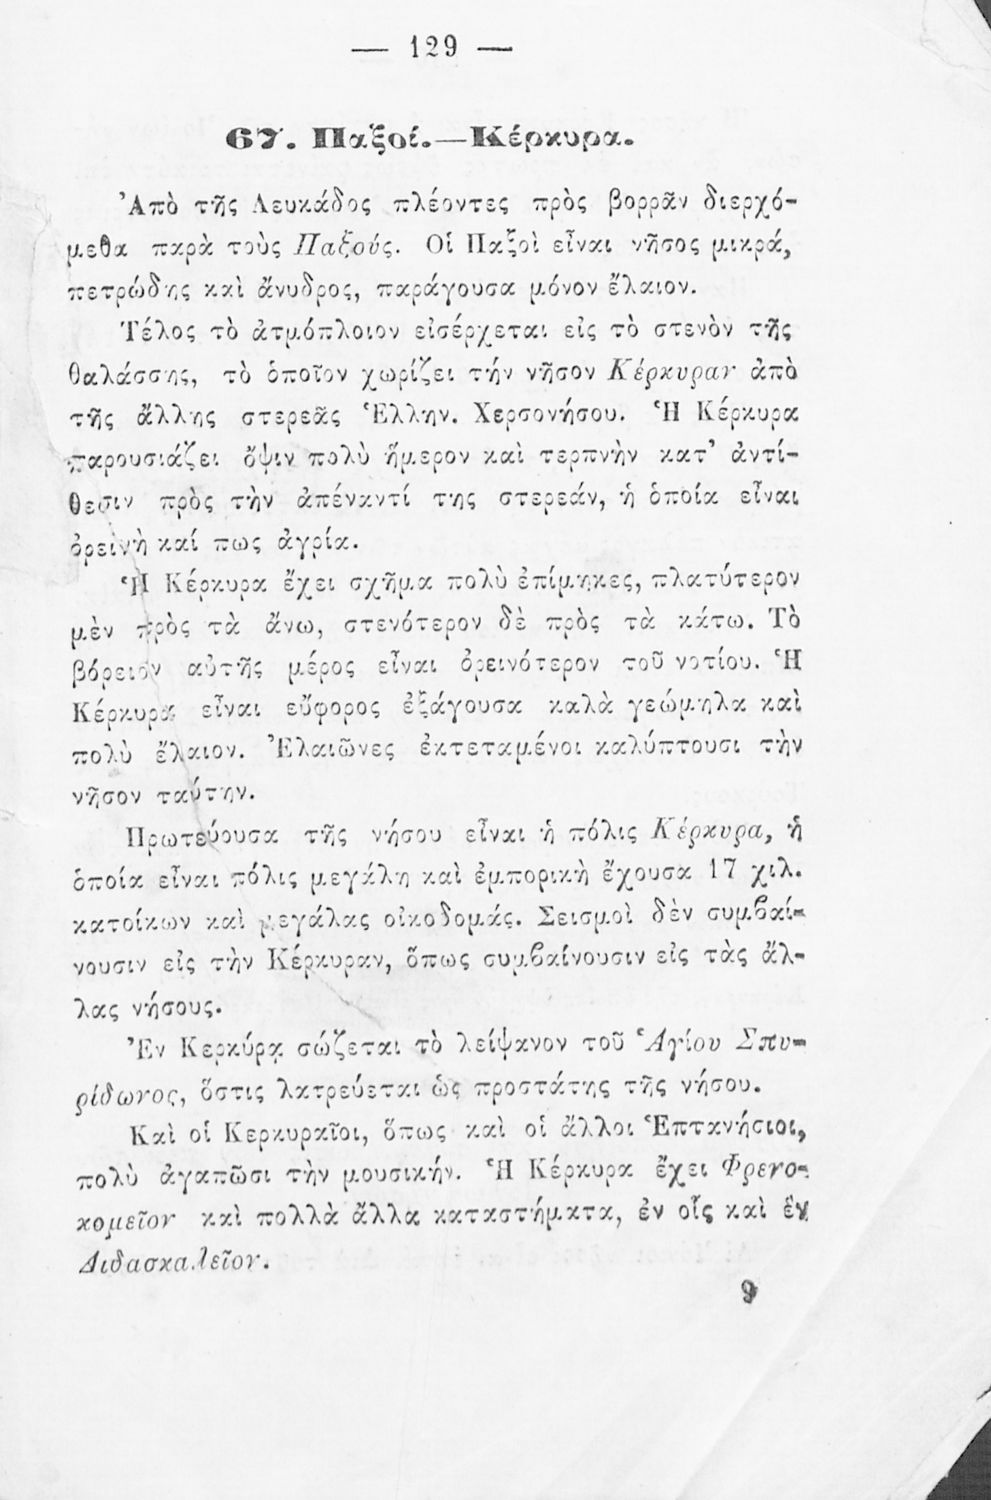 — 129 —
67. Παξοί.—Κέρκυρα.
Ἀπὸ τῆς Λευκάδος πλέοντες πρὸς βορρᾶν διερχό-
μεθα παρὰ τοὺς Παξούς. Οἱ Παξοὶ εἶναι νῆσος μικρά,
πετρώδης καὶ ἄνυδρος, παράγουσα μόνον ἔλαιον.
Τέλος τὸ ἀτμόπλοιον εἰσέρχεται εἰς τὸ στενὸν τῆς
θαλάσσης, τὸ ὁποῖον χωρίζει τήν νῆσον Κέρκυραν ἀπὸ
τῆς ἄλλης στερεᾶς Ἑλλην. Χερσονήσου. Ἡ Κέρκυρα
παρουσιάζει ὄψιν πολὺ ἥμερον καὶ τερπνὴν κατ’ ἀντί-
θεσιν πρὸς τὴν ἀπέναντί της στερεάν, ἡ ὁποία εἶναι
ὀρεινὴ καί πως ἀγρία.
Ἡ Κέρκυρα ἔχει σχῆμα πολὺ ἐπίμηκες, πλατύτερον
μὲν πρὸς τὰ ἄνω, στενότερον δὲ πρὸς τὰ κάτω. Τὸ
βόρειον αὐτῆς μέρος εἶναι ὀρεινότερον τοῦ νοτίου. Ἡ
Κέρκυρα εἶναι εὔφορος ἐξάγουσα καλὰ γεώμηλα καὶ
πολὺ ἔλαιον. Ἐλαιῶνες ἐκτεταμένοι καλύπτουσι τὴν
νῆσον ταύτην.
Πρωτεύουσα τῆς νήσου εἶναι ἡ πόλις Κέρκυρα, ἡ
ὁποία εἶναι πόλις μεγάλη καὶ ἐμπορικὴ ἔχουσα 17 χιλ.
κατοίκων καὶ μεγάλας οἰκοδομάς. Σεισμοὶ δὲν συμβαί-
νουσιν εἰς τὴν Κέρκυραν, ὅπως συμβαίνουσιν εἰς τὰς ἄλ-
λας νήσους.
Ἐν Κερκύρᾳ σώζεται τὸ λείψανον τοῦ Ἁγίου Σπυ-
ρίδωνος, ὅστις λατρεύεται ὡς προστάτης τῆς νήσου.
Καὶ οἱ Κερκυραῖοι, ὅπως καὶ οἱ ἄλλοι Ἑπτανήσιοι,
πολὺ ἀγαπῶσι τὴν μουσικήν. Ἡ Κέρκυρα ἔχει Φρενο-
κομεῖον καὶ πολλὰ ἄλλα καταστήματα, ἐν οἷς καὶ ἓν
Διδασκαλεῖον.
9